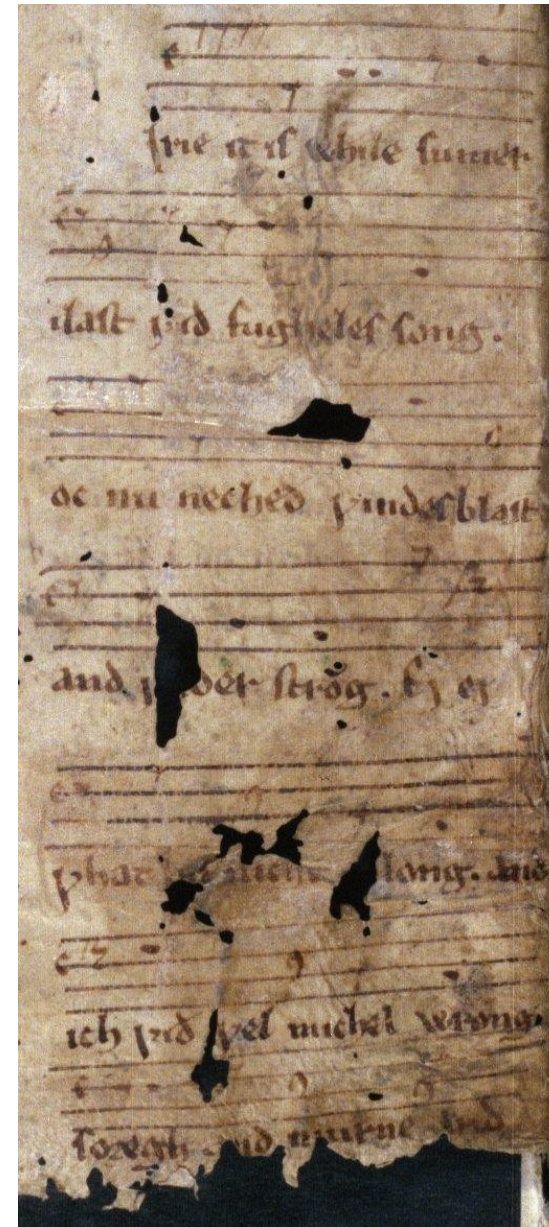 irie it is while sumer
ilast ƿið fugheles song.
oc nu necheð ƿindes blast
and strõg. Ej ej
ƿhat nicht long. and
ich ƿið ƿel michel wrong.
soregh and murne and